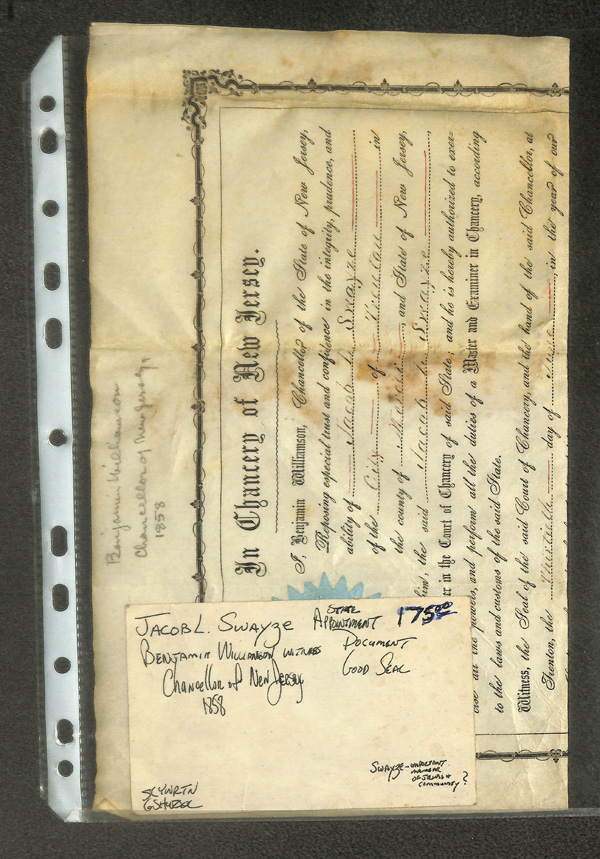 Benjamin Williamson
Chancellor of New Jersey,
1858
In Chancery of New Jersey.
I, Benjamin Williamson, Chancellor of the State of New Jersey,
Reposing especial trust and confidence in the integrity, prudence, and
ability of Jacob L. Swayze
of the City of in
the county of , and State of New Jersey,
him, the said Jacob L. Swayze,
er in the Court of Chancery of said State; and he is hereby authorized to exer-
cise all the powers, and perform all the duties of a Master and Examiner in Chancery, according
to the laws and customs of the said State.
Witness, the Seal of the said Court of Chancery, and the hand of the said Chancellor, at
Trenton, the day of , in the year of our
JACOB L. SWAYZE STATE APPOINTMENT 175.00
BENJAMIN WILLIAMSON WITNESS DOCUMENT
Chancellor of New Jersey GOOD SEAL
1858
SWAYZE - IMPORTANT
MEMBER
OF JEWISH
COMMUNITY ?